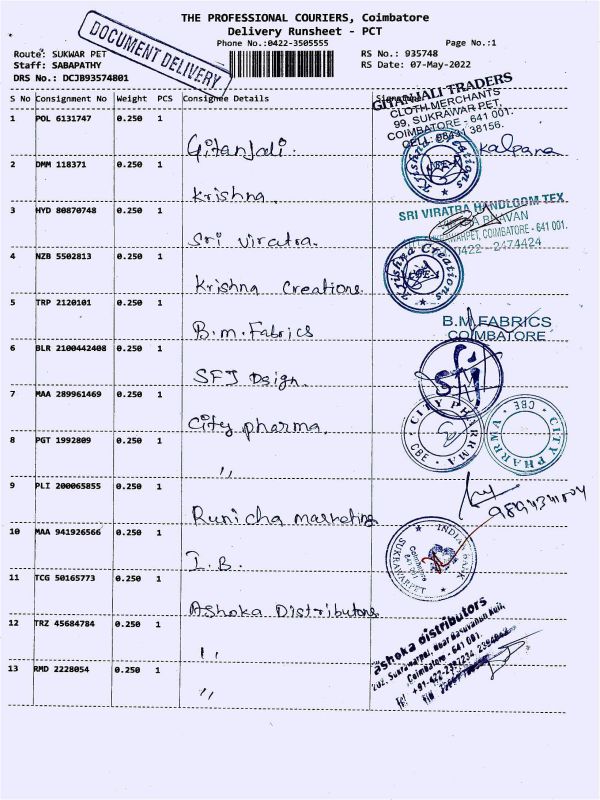 THE PROFESSIONAL COURIERS, Coimbatore
Delivery Runsheet - PCT
Phone No.:0422-3505555 Page No.:1
DOCUMENT DELIVERY
Route: SUKWAR PET RS No.: 935748
Staff: SABAPATHY RS Date: 07-May-2022
DRS No.: DCJB93574801
S No Consignment No Weight PCS Consignee Details
GITANJALI TRADERS
CLOTH MERCHANTS
99, SUKRAWAR PET,
COIMBATORE - 641 001.
1 POL 6131747 0.250 1 Gitanjali. Kalpana
2 DMM 118371 0.250 1 Krishna. Krishna Creations
3 HYD 80870748 0.250 1 Sri Viratra. SRI VIRATRA HANDLOOM TEX
COIMBATORE - 641 001.
0422 - 2474424
4 NZB 5502813 0.250 1 Krishna Creations Krishna Creations
5 TRP 2120101 0.250 1 B.M.Fabrics B.M.FABRICS
COIMBATORE
6 BLR 2100442408 0.250 1 SFJ Dsign.
7 MAA 289961469 0.250 1 City pharma. CITY PHARRMA CBE CITY PHARRMA CBE
8 PGT 1992809 0.250 1 "
9 PLI 200065855 0.250 1 Runicha marketing
10 MAA 941926566 0.250 1 I.B. INDIAN BANK SUKRAWARPET Coimbatore 641 001
11 TCG 50165773 0.250 1 Ashoka Distributors
12 TRZ 45684784 0.250 1 "
ashoka distributors
Coimbatore - 641 001.
13 RMD 2228054 0.250 1 "